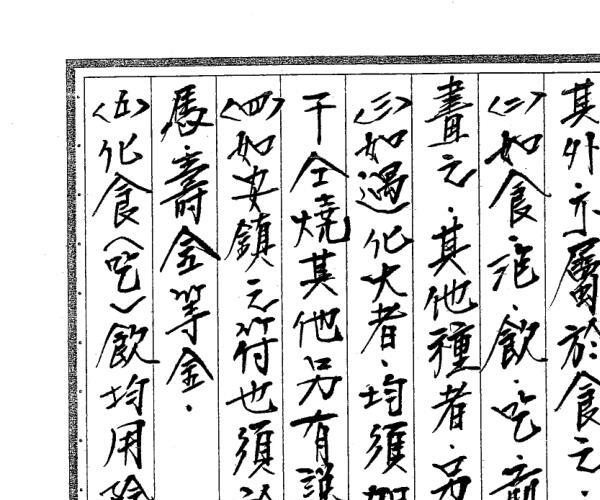 其外亦屬於食之.
〈二〉如食泡.飲.吃.
畫之.其他種者.另
〈三〉如過化火者.均須
干仝燒其他另有說
〈四〉如安鎮之符也須
馮.壽金等金.
〈五〉化食(吃)飲均用